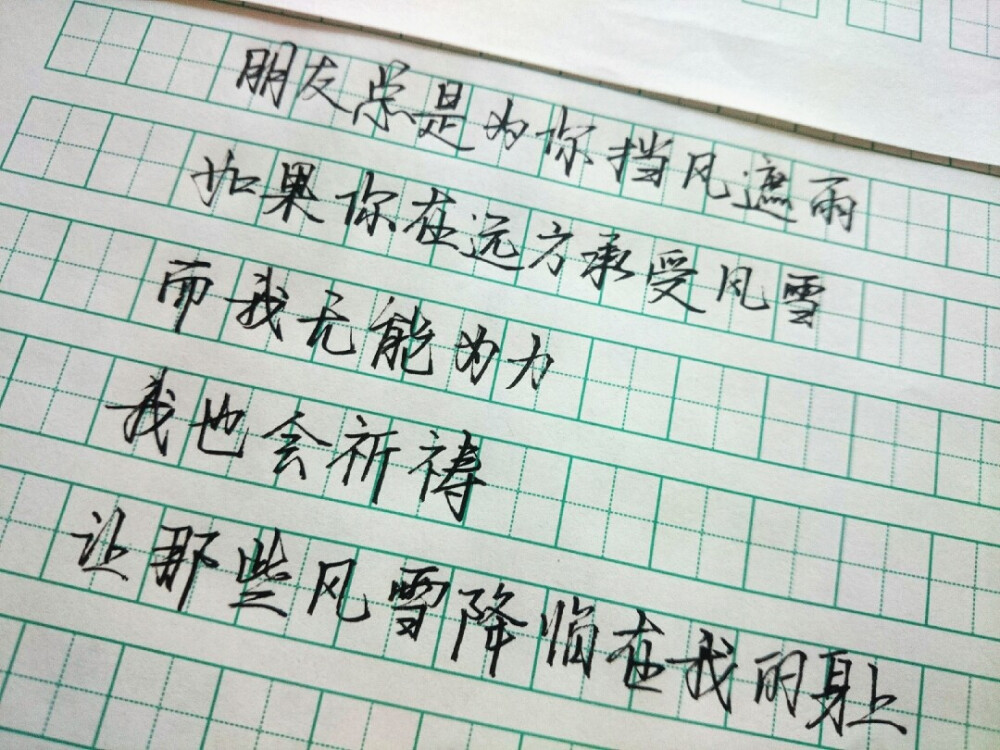 朋友总是为你挡风遮雨
如果你在远方承受风雪
而我无能为力
我也会祈祷
让那些风雪降临在我的身上